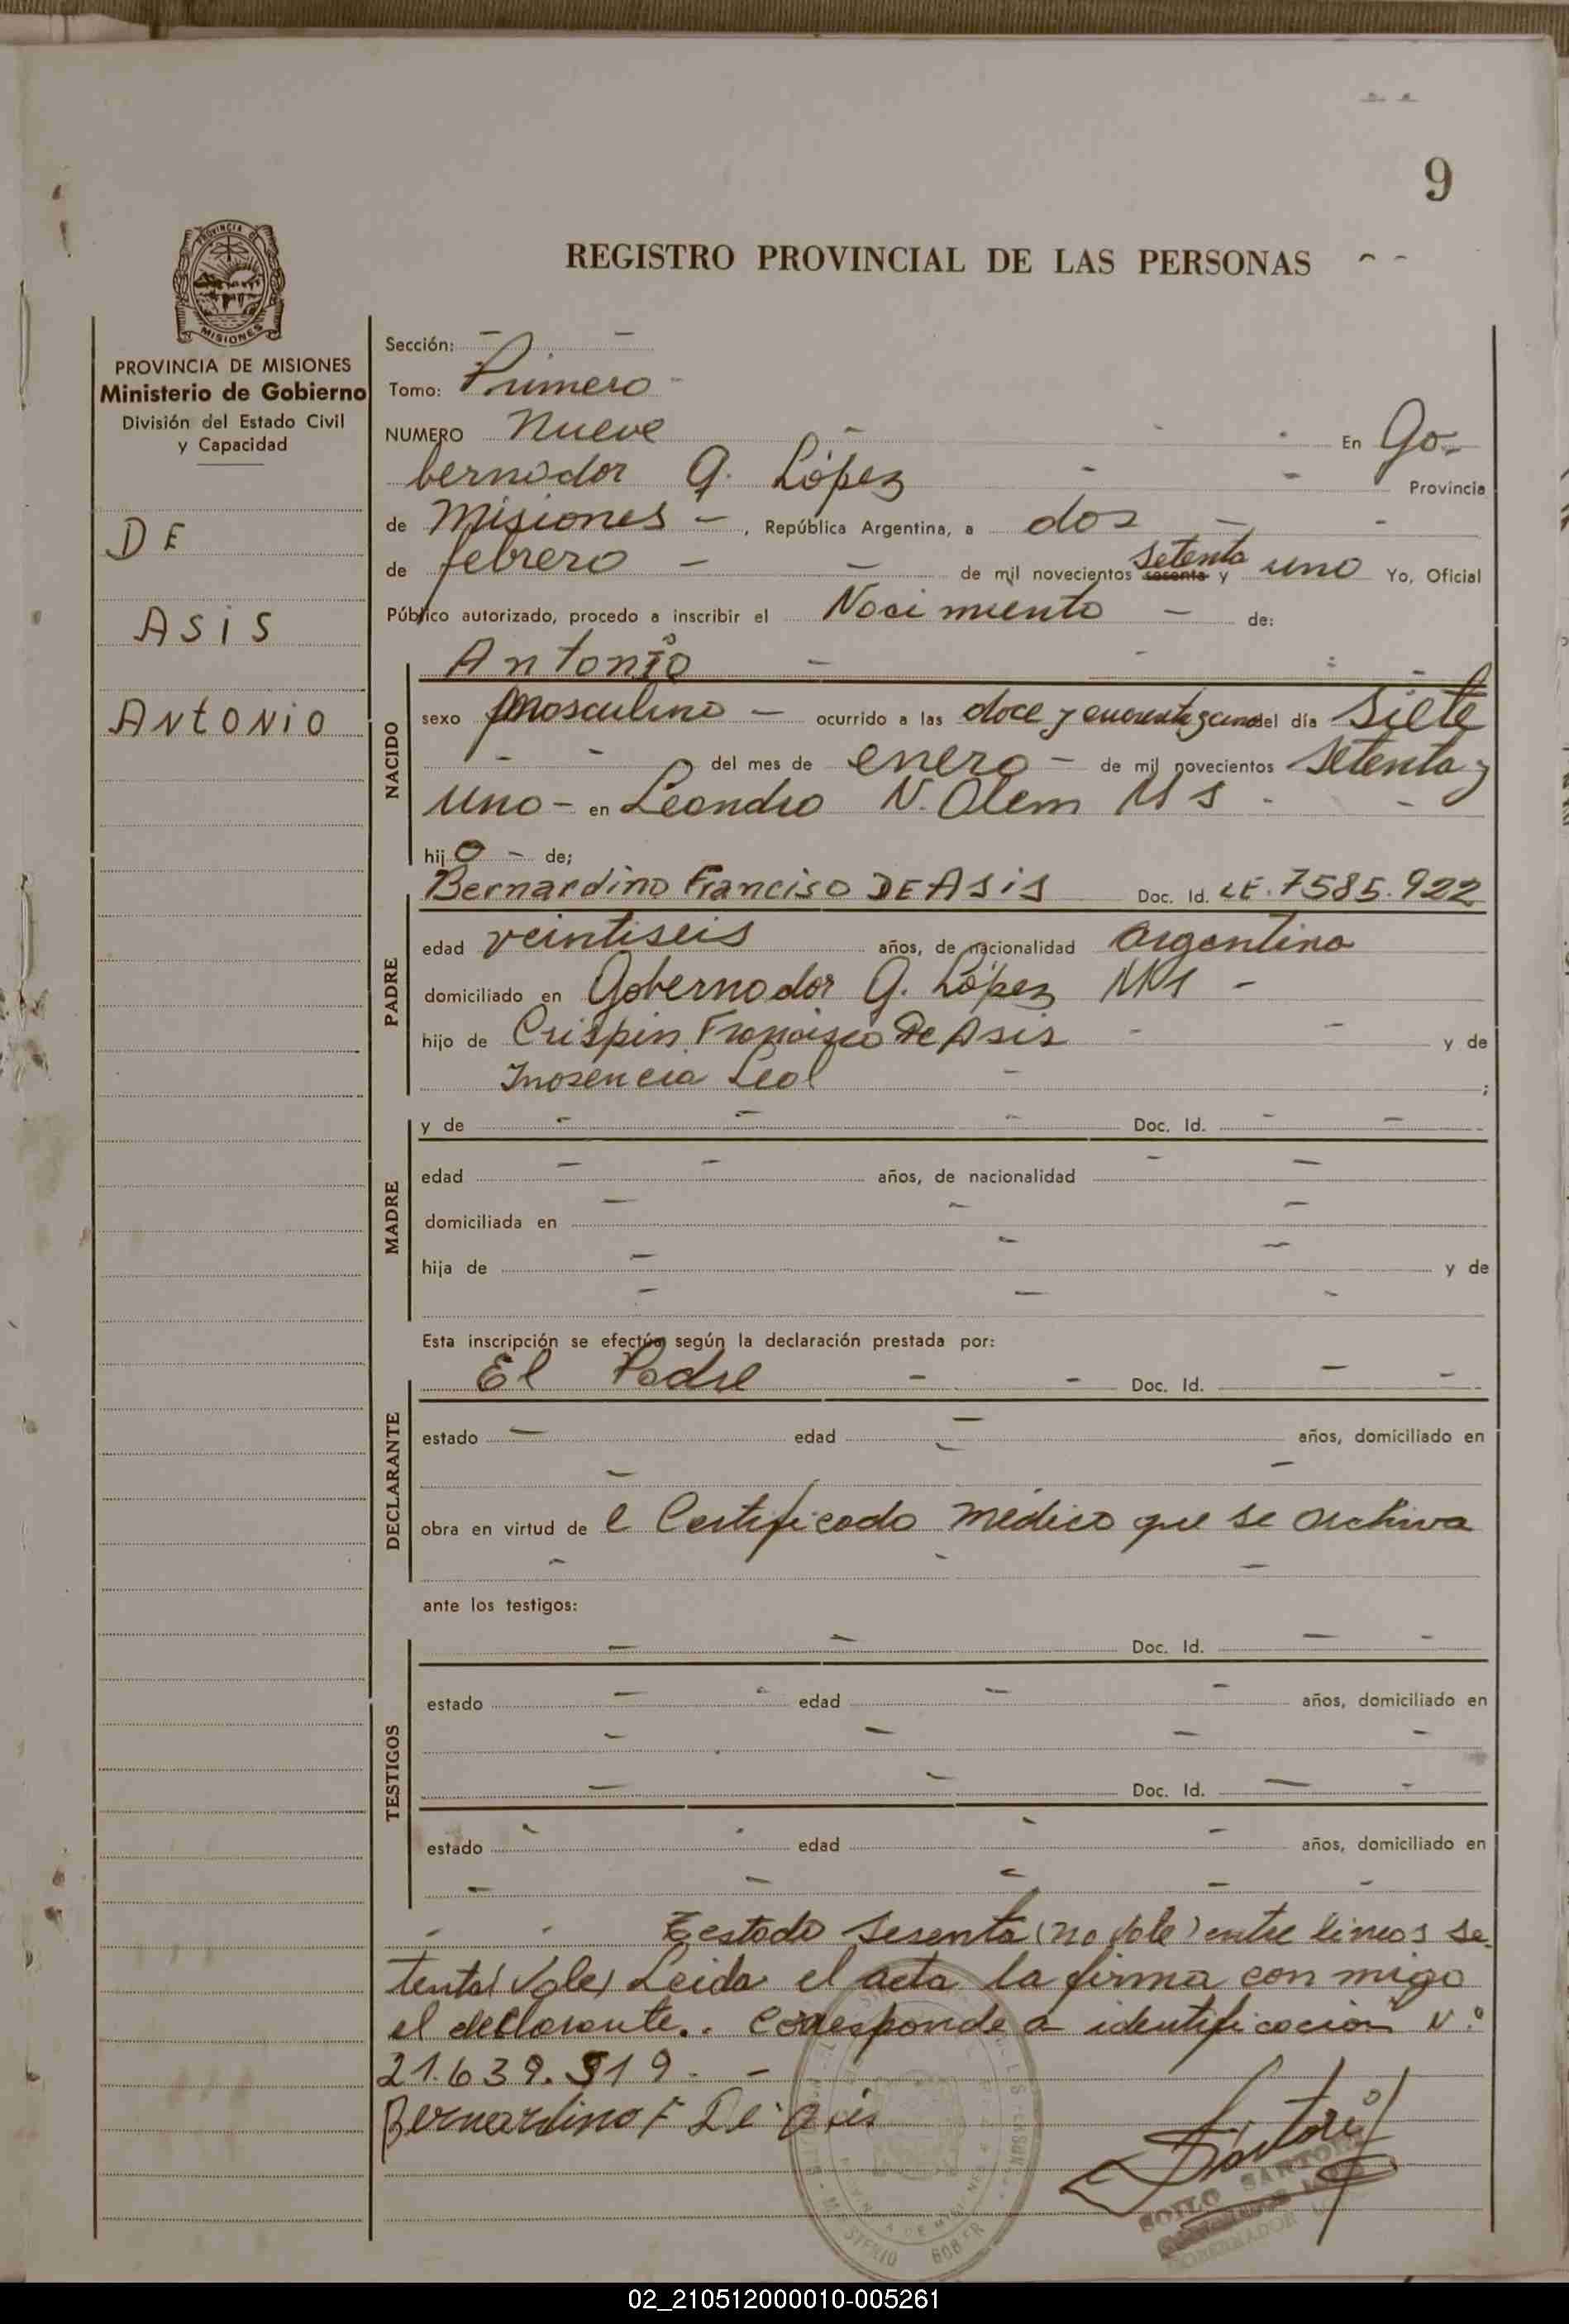 9
REGISTRO PROVINCIAL DE LAS PERSONAS
PROVINCIA DE
MISIONES
PROVINCIA DE MISIONES
Ministerio de Gobierno
División del Estado Civil
y Capacidad
DE
ASIS
ANTONIO
Sección: - -
Tomo: Primero -
NUMERO Nueve - - - En Go-
bernador G. López - - Provincia
de Misiones -, República Argentina, a dos - -
de febrero - - de mil novecientos sesenta y setenta uno Yo, Oficial
Público autorizado, procedo a inscribir el Nacimiento - de:
NACIDO
Antonio - - - -
sexo masculino - ocurrido a las doce y cuarenta y cinco del día Siete
- - del mes de enero - de mil novecientos setenta y
uno - en Leandro N. Alem Ms - -
hijo - de;
PADRE
Bernardino Franciso DE ASIS Doc. Id. LE. 7585.922
edad veintiseis años, de nacionalidad argentina
domiciliado en Gobernador G. López Mns -
hijo de Crispin Francisco De Asis - - y de
Inosencia Leal - ;
MADRE
y de - - - Doc. Id. - -
edad - - años, de nacionalidad - -
domiciliada en - - -
hija de - - - y de
- - -
Esta inscripción se efectúa según la declaración prestada por:
DECLARANTE
El Padre - - Doc. Id. - -
estado - edad - años, domiciliado en
- -
obra en virtud de l Certificado médico que se archiva
- - -
ante los testigos:
TESTIGOS
- - Doc. Id. - -
estado - - edad - - años, domiciliado en
- - - -
- - Doc. Id. - -
estado - - edad - - años, domiciliado en
- - - - -
- - Testado sesenta (no vale) entre lineas se-
tenta (vale) Leida el acta la firma con migo
el declarante.. Corresponde a identificación N.º
21.639.919. -
Bernardino F De asis
Sartori
SOILO SARTORI
GOBERNADOR
02_210512000010-005261